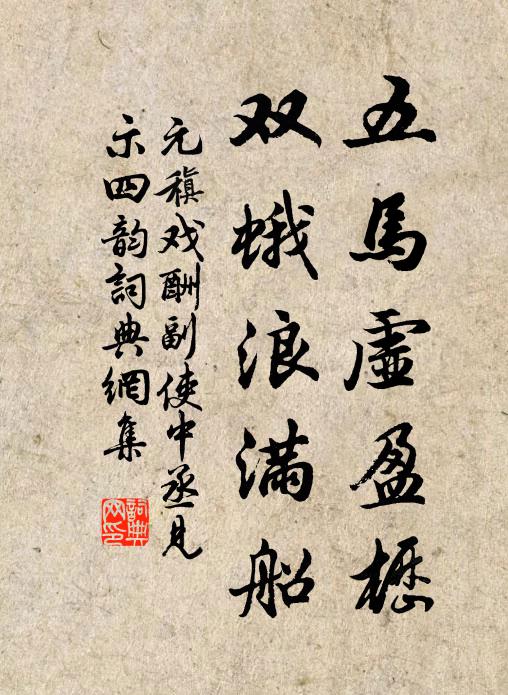 五馬虛盈櫪
双蛾浪满船
元稹戏酬副使中丞见
示四韵詞典網集
詞典网印